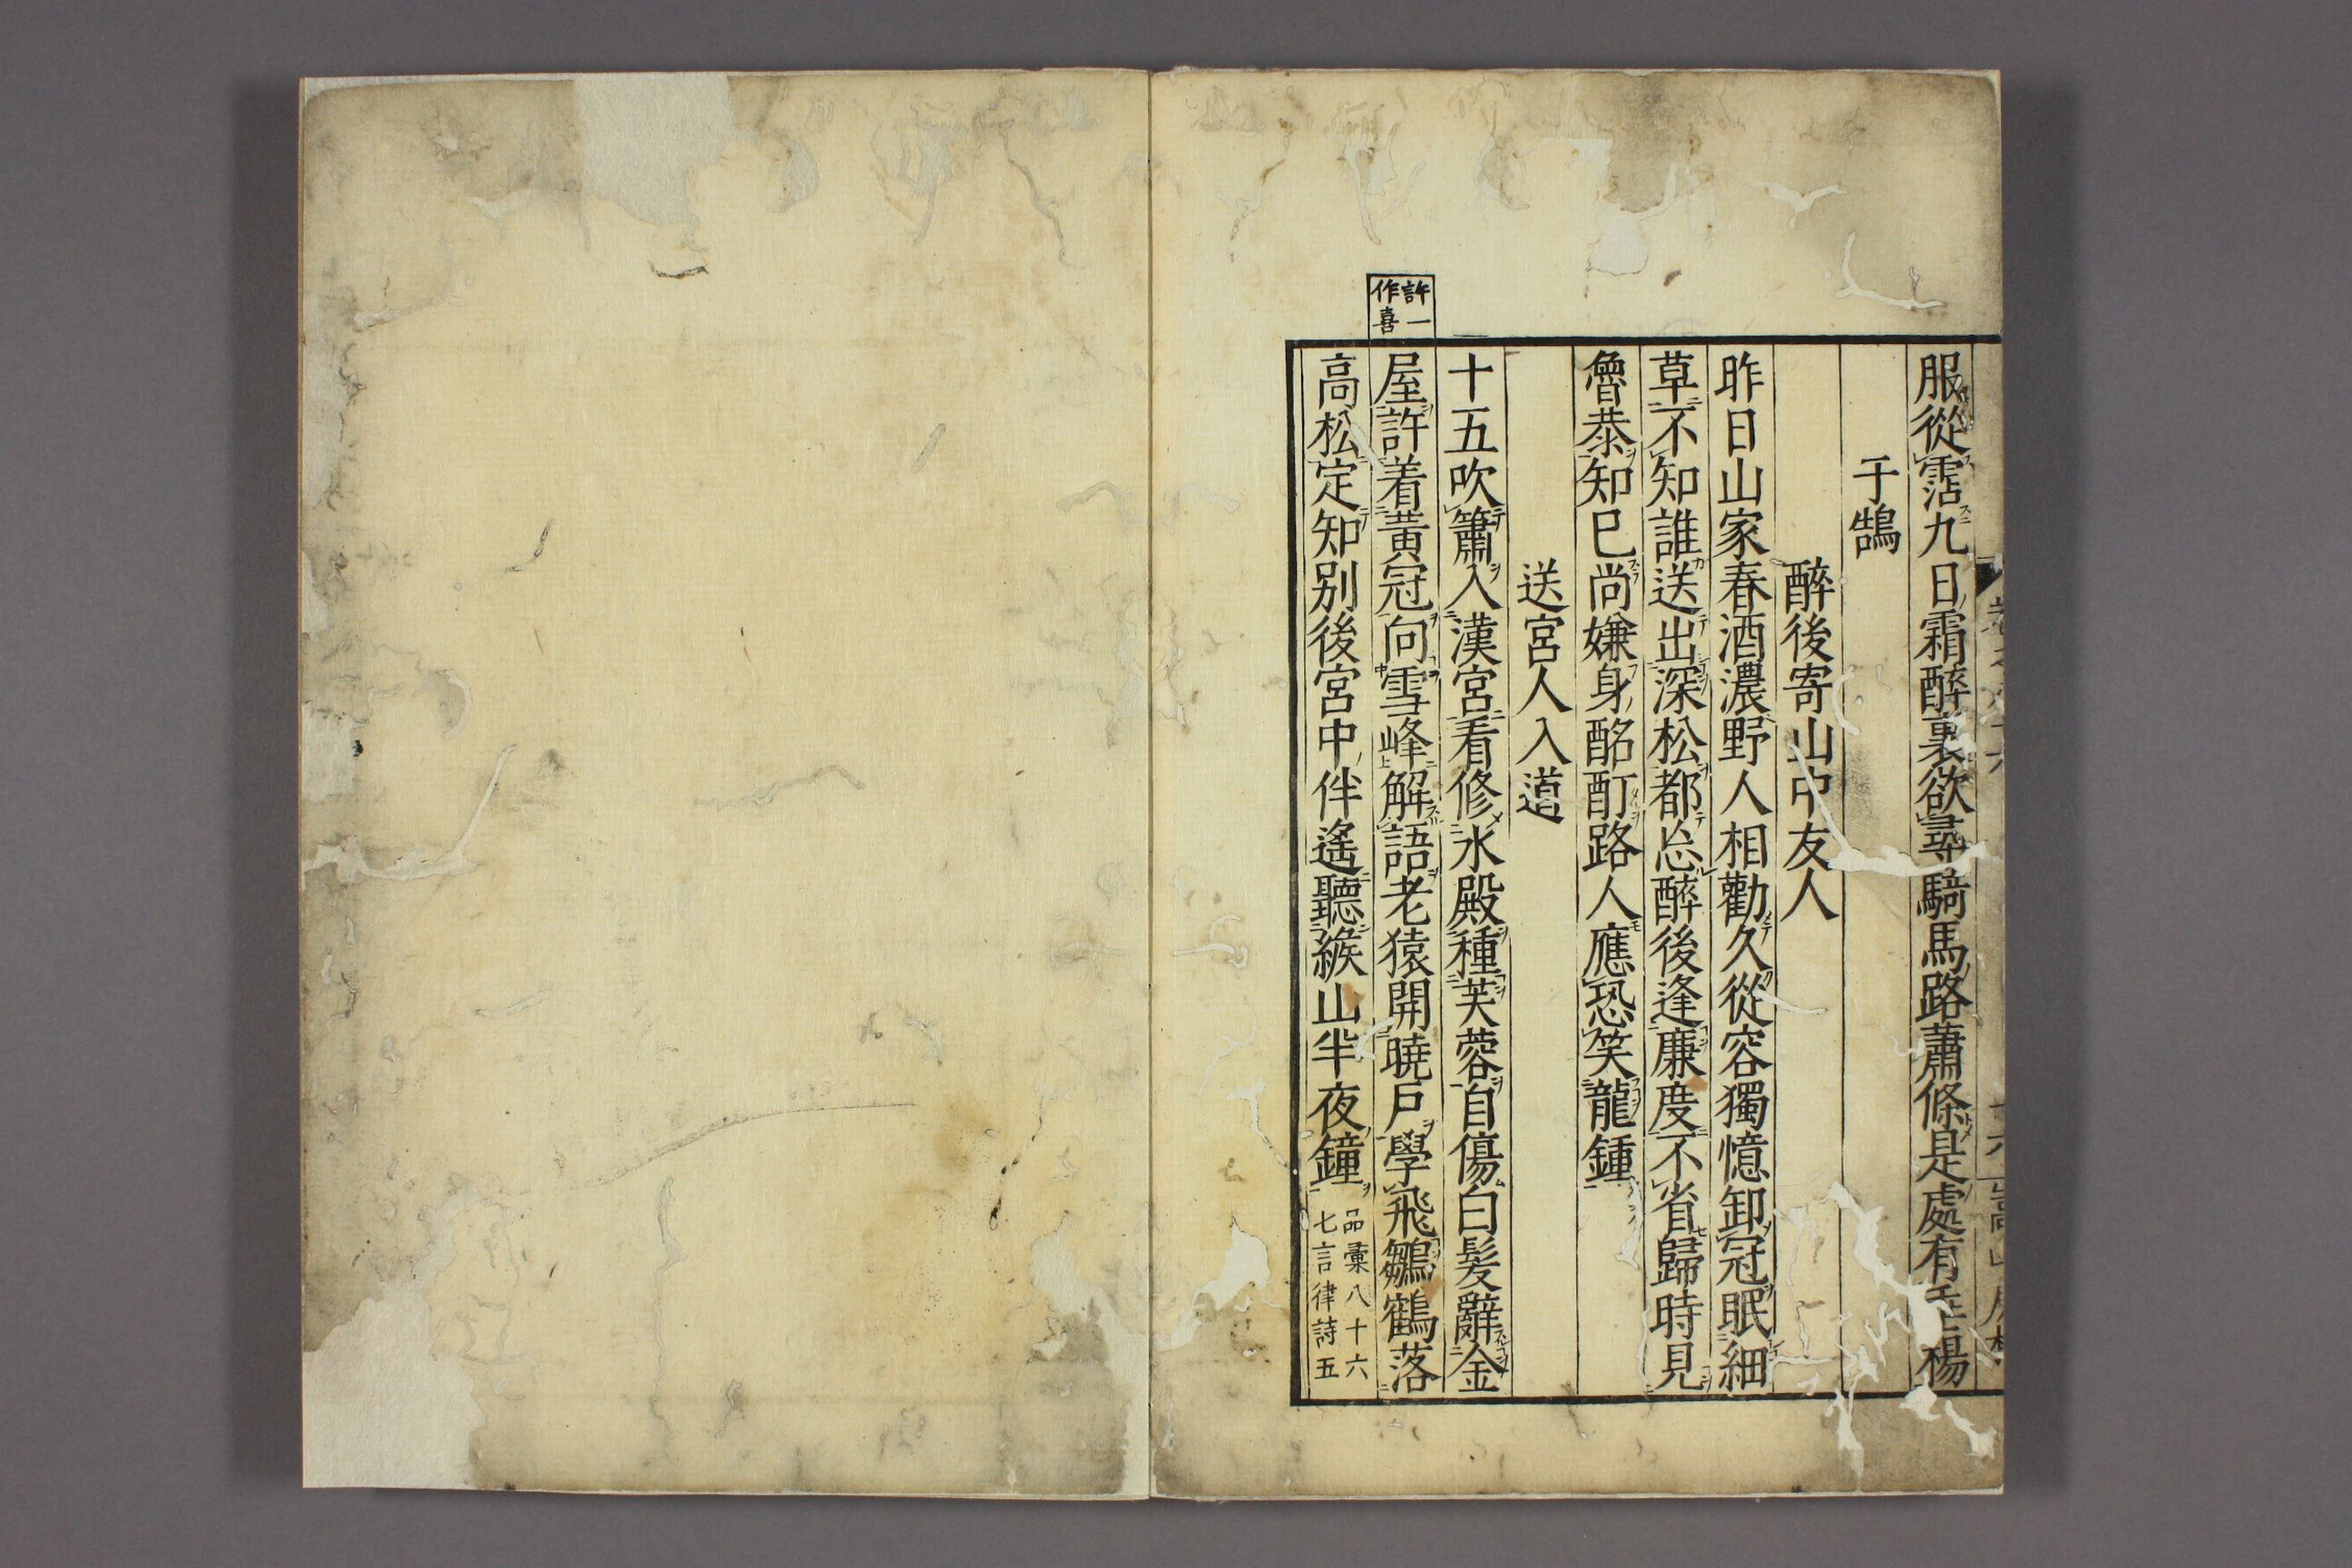 服從霑九日霜醉裏欲尋騎馬路蕭條是處有垂楊
于鵠
醉後寄山中友人
昨日山家春酒濃野人相勸久從容獨憶卸冠眠細
草不知誰送出深松都忘醉後逢廉度不省歸時見
魯恭知已尚嫌身酩酊路人應恐笑龍鍾
送宮人入道
十五吹簫入漢宮看修水殿種芙蓉自傷白髮辭金
許一
作喜
屋許着黃冠向雪峰解語老猿開曉戶學飛鶵鶴落
高松定知別後宮中伴遙聽緱山半夜鐘
品彙八十六
七言律詩五